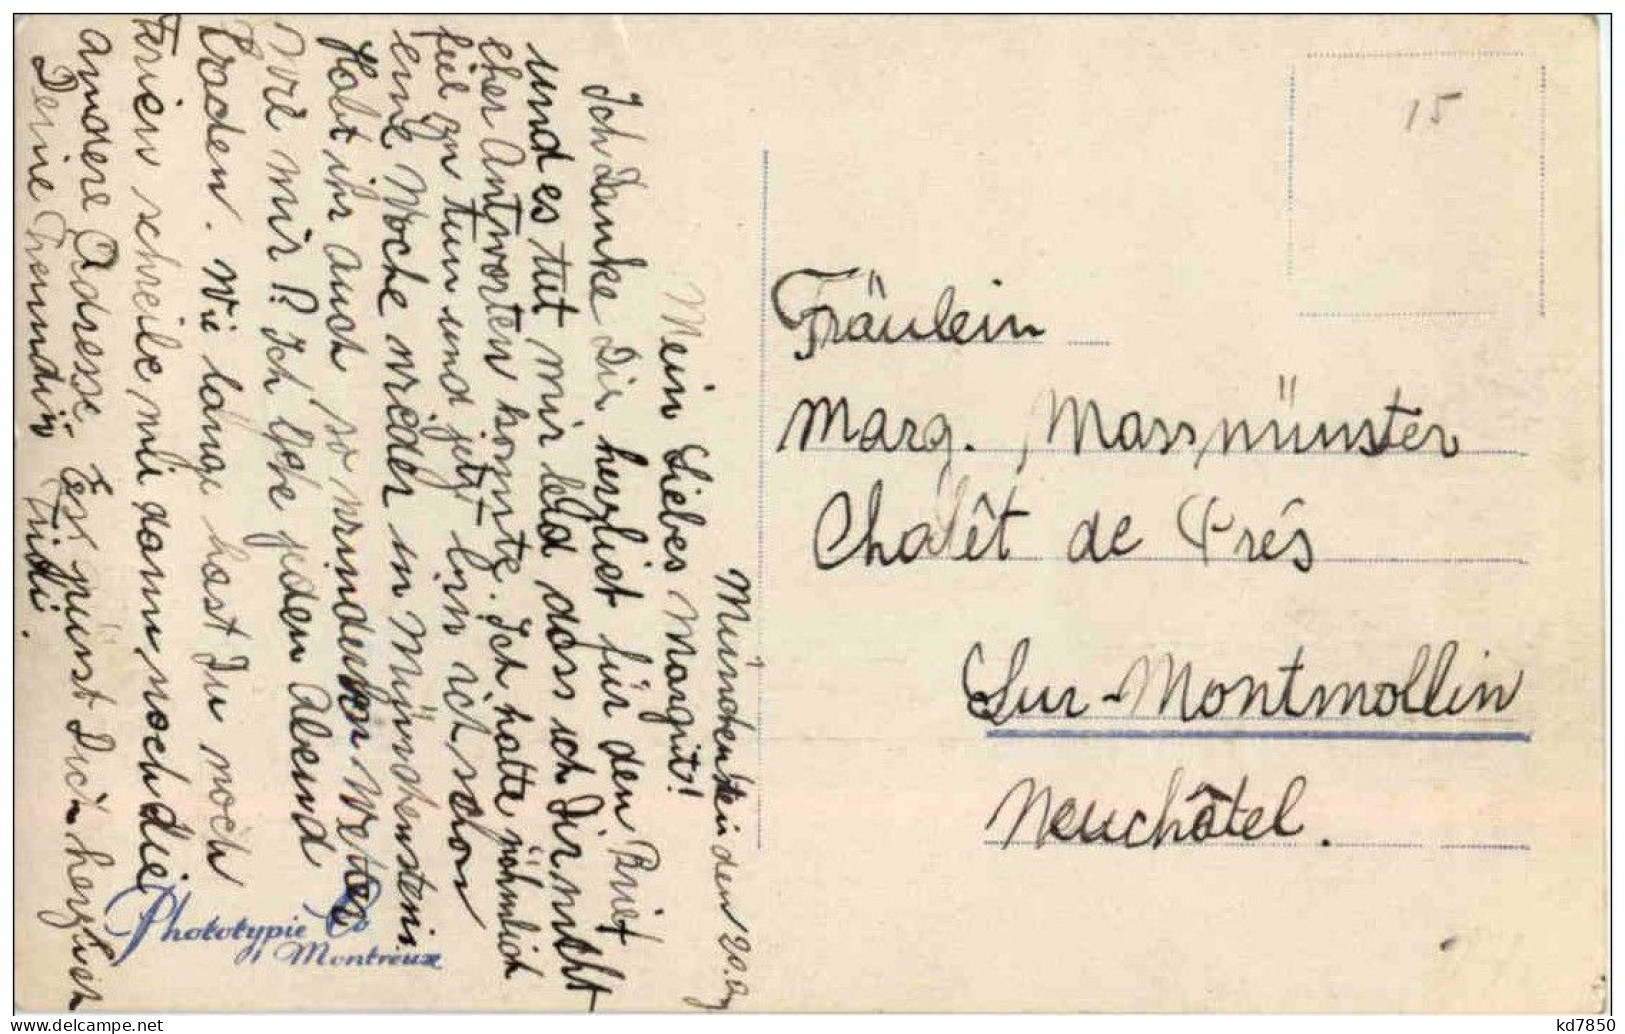 Münchenstein den 20. Aug
Mein Liebes Margrit!
Ich Danke Dir herzlich für den Brief
und es tut mir leid dass ich Dir nicht
eher Antworten konnte. Ich hatte nähmlich
fiel zu tun und jetzt bin ich schon
eine Woche wieder in Münchenstein.
Habt ihr auch so wunderbar Wetter
wie wir? Ich gehe jeden Abend
Baden. Wie lange hast Du noch
Ferien schreibe mir dann noch die
andere Adresse. Es grüsst Dich herzlich
Deine Freundin Trudi.
15
Fräulein
Marg. Massmünster
Chalêt de Prés
Sur-Montmollin
Neuchâtel.
Phototypie Co
Montreux
delcampe.net
kd7850